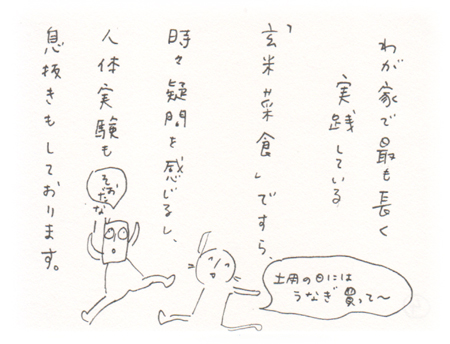 わが家で最も長く
実践している
「玄米菜食」ですら、
時々疑問を感じるし、
人体実験も
息抜きもしております。
土用の日には
うなぎ買って〜